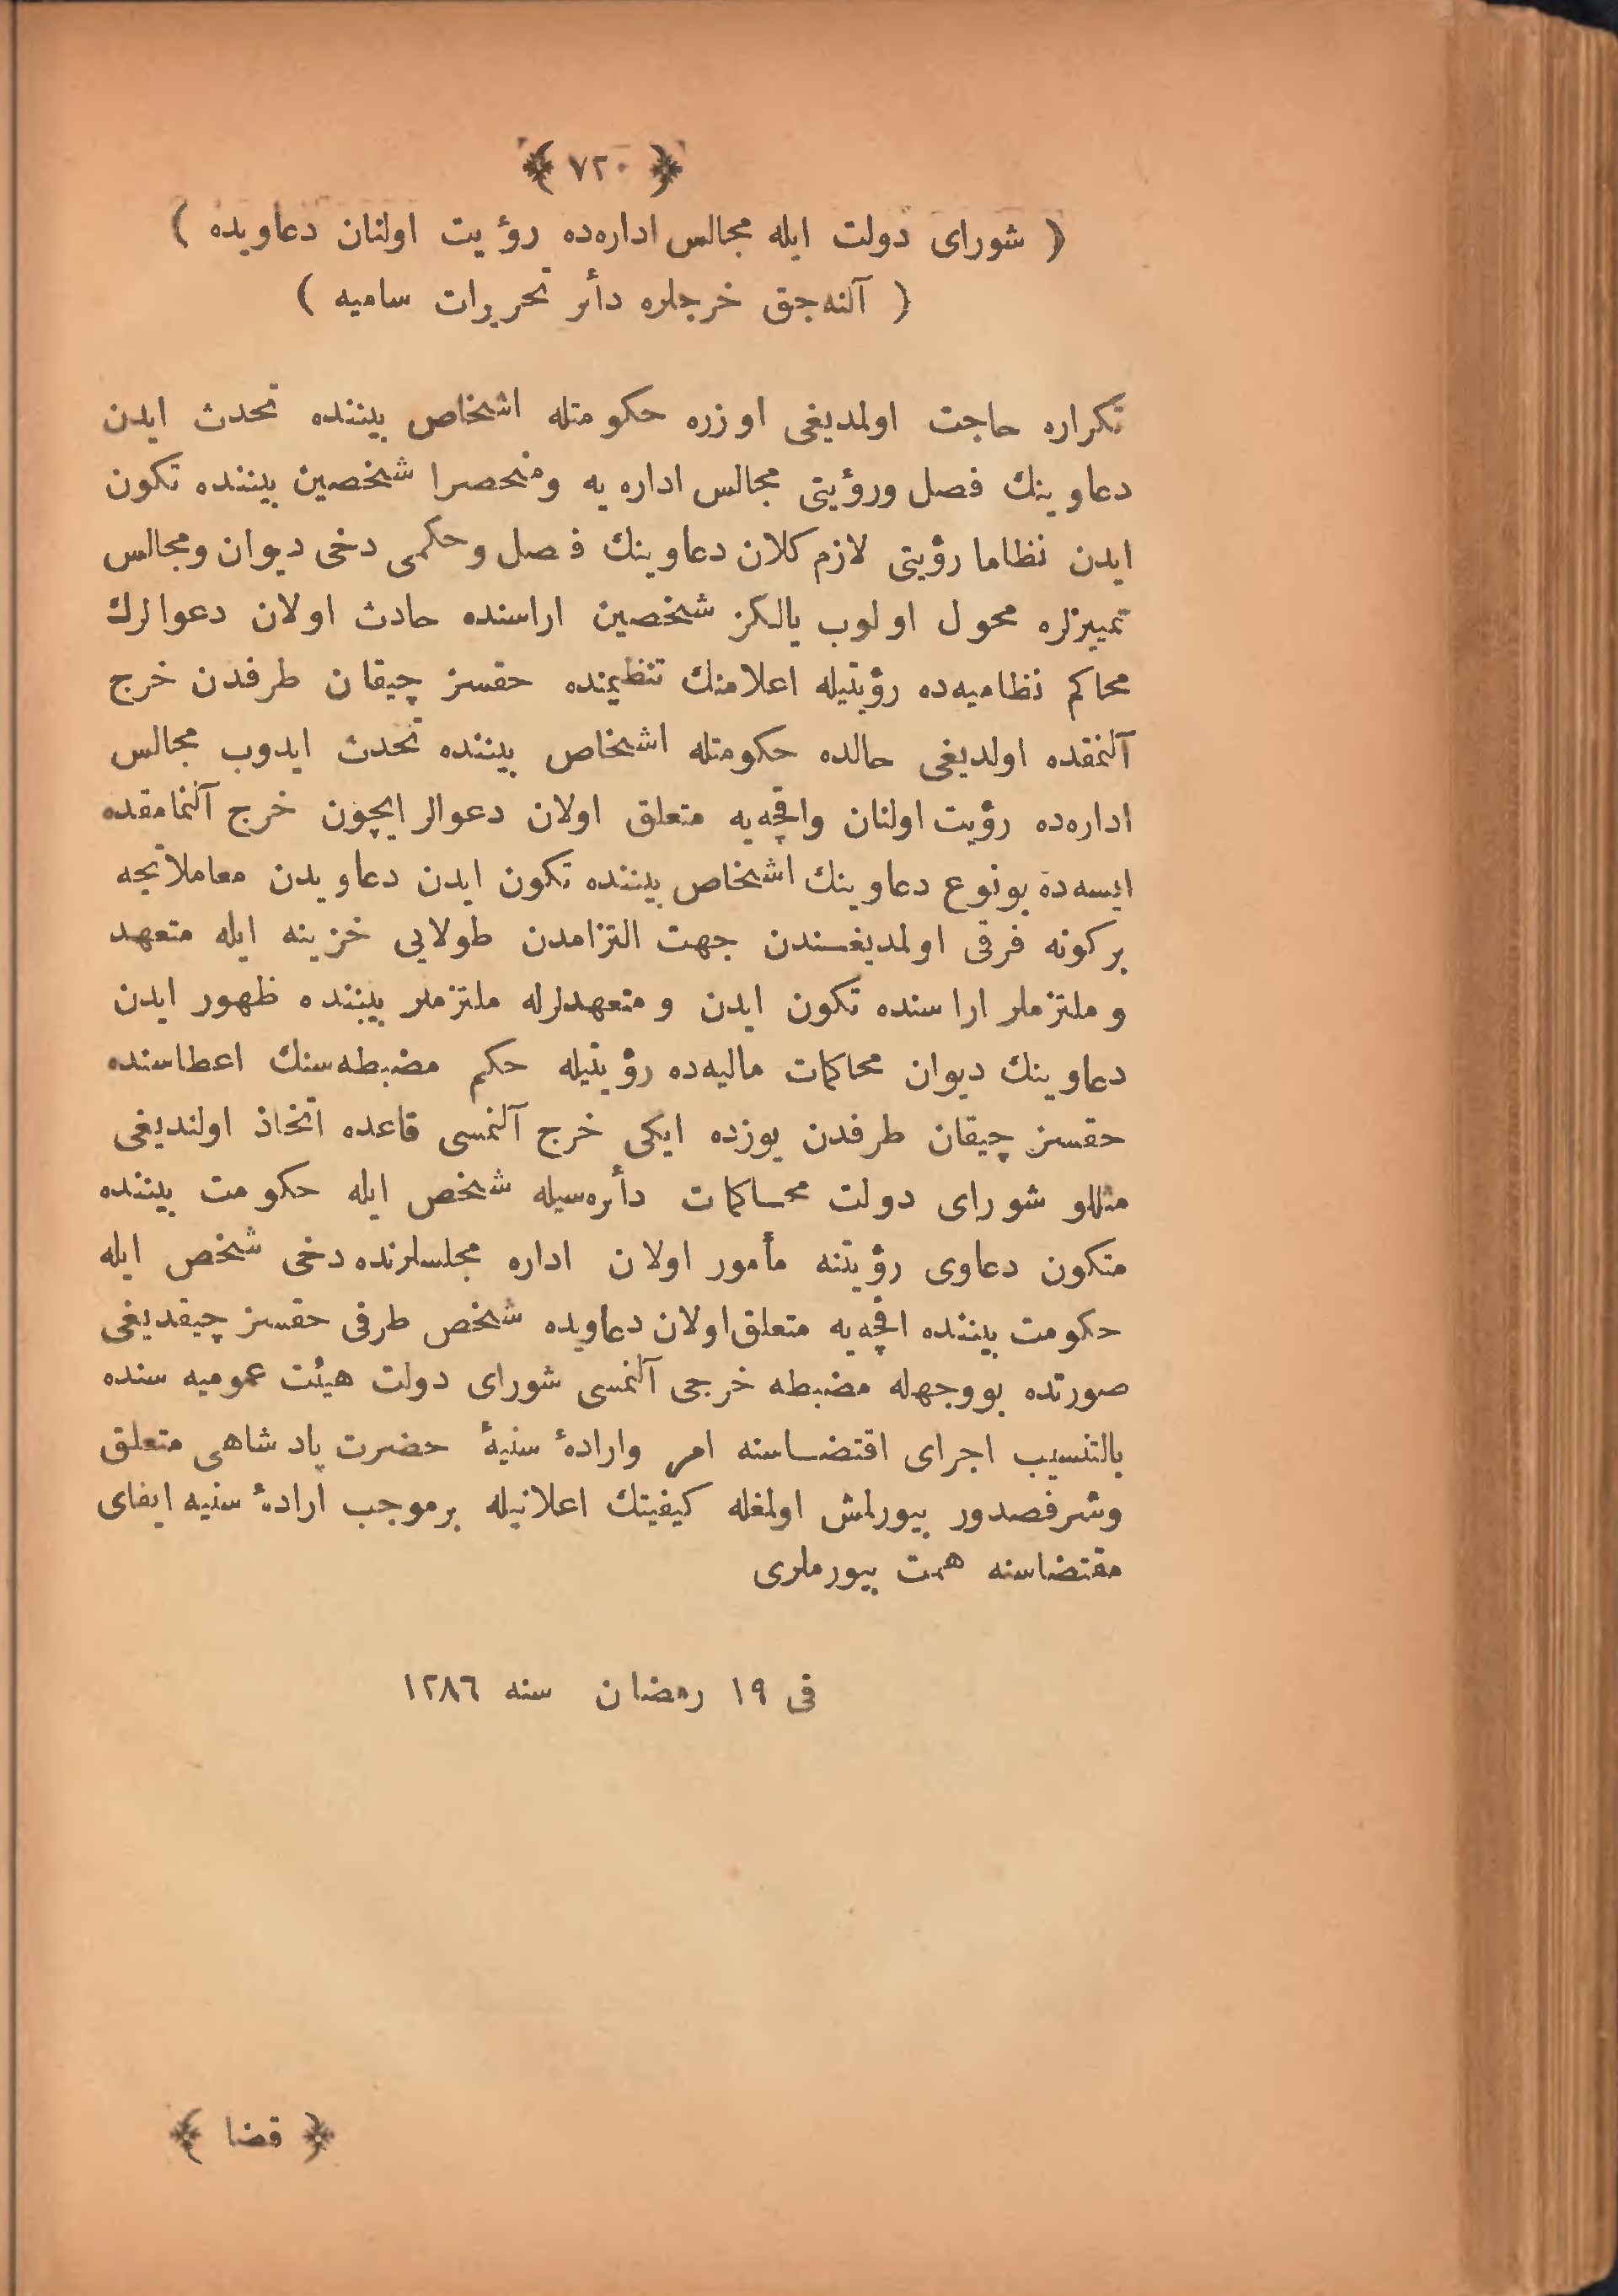 ﴿ ٧٢٠ ﴾
( شوراى دولت ايله مجالس اداره‌ده رؤيت اولنان دعاويده )
( آلنه‌جق خرجلره دأئر تحريرات ساميه )
تكراره حاجت اولمديغى اوزره حكومتله اشخاص بيننده تحدث ايدن
دعاوينك فصل ورؤيتى مجالس اداره يه ومنحصرا شخصين بيننده تكون
ايدن نظاما رؤيتى لازم كلان دعاوينك فصل وحكمى دخى ديوان ومجالس
تمييزلره محول اولوب يالكز شخصين اراسنده حادث اولان دعوالرك
محاكم نظاميه‌ده رؤيتيله اعلامنك تنظيمنده حقسز چيقان طرفدن خرج
آلنمقده اولديغى حالده حكومتله اشخاص بيننده تحدث ايدوب مجالس
اداره‌ده رؤيت اولنان واقچه‌يه متعلق اولان دعوالر ايچون خرج آلنمامقده
ايسه‌ده بونوع دعاوينك اشخاص بيننده تكون ايدن دعاويدن معاملاتجه
بر كونه فرقى اولمديغسندن جهت التزامدن طولايى خزينه ايله متعهد
و ملتزملر اراسنده تكون ايدن و متعهدلرله ملتزملر بيننده ظهور ايدن
دعاوينك ديوان محاكمات ماليه‌ده رؤيتيله حكم مضبطه‌سنك اعطاسنده
حقسز چيقان طرفدن يوزده ايكى خرج آلنمسى قاعده اتخاذ اولنديغى
مثللو شوراى دولت محاكمات دأئره‌سيله شخص ايله حكومت بيننده
متكون دعاوى رؤيتنه مأمور اولان اداره مجلسلرنده دخى شخص ايله
حكومت بيننده اقچه‌يه متعلق اولان دعاويده شخص طرفى حقسز چيقديغى
صورتده بووجهله مضبطه خرجى آلنمسى شوراى دولت هيئت عموميه سنده
بالتنسيب اجراى اقتضاسنه امر وارادهٔ سنيهٔ حضرت پادشاهى متعلق
وشرفصدور بيورلمش اولمغله كيفيتك اعلانيله برموجب ارادهٔ سنيه ايفاى
مقتضاسنه همت بيورملرى
فى ١٩ رمضان سنه ١٢٨٦
﴿ قضا ﴾